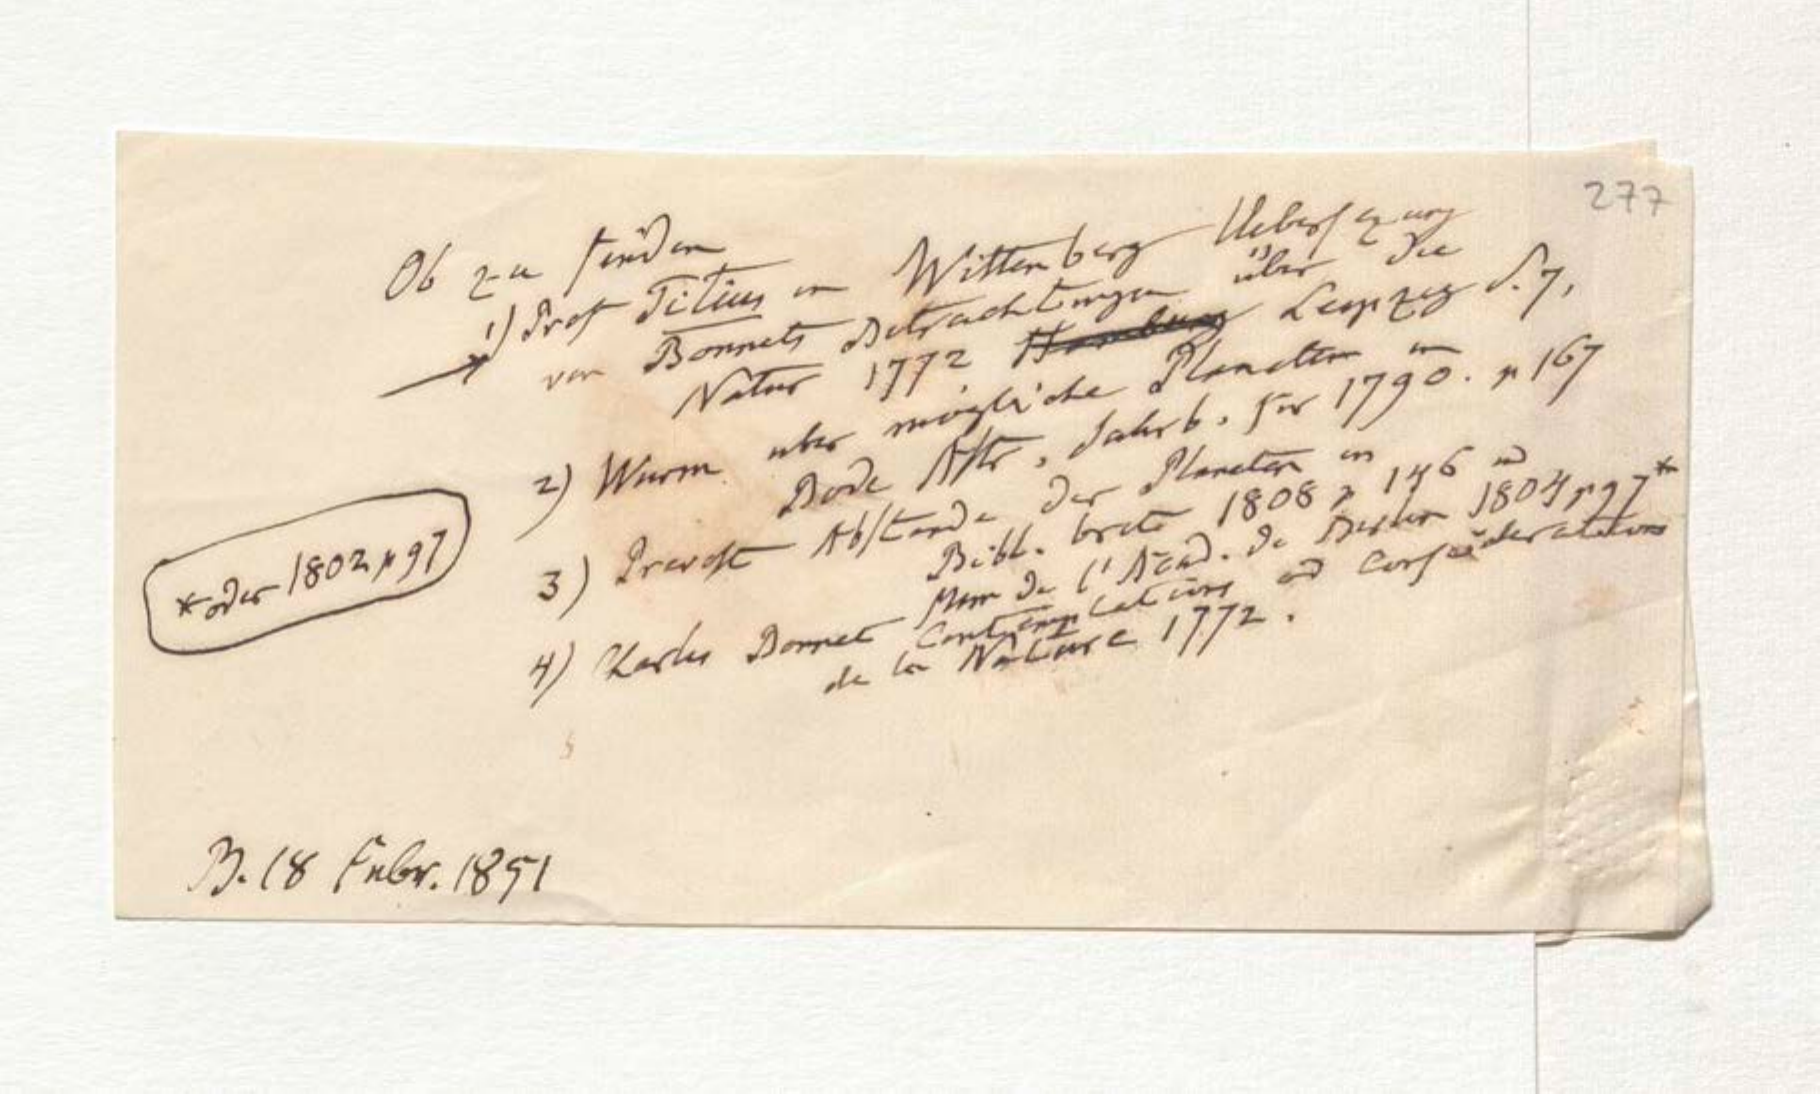 277
Ob zu finden
1) Prof Titius in Wittenberg Uebersezung
von Bonnets Betrachtungen über die
Natur 1772 Hamburg Leipzig S. 7,
2) Wurm über mögliche Planeten in
Bode Astr. Jahrb. für 1790. p 167
3) Prevost Abstande der Planeten in
Bibl. brit. 1808 p 146 und
Mem de l'Acad. de Berlin 1804 p 97*
4) Charles Bonnet Contemplations ou Considerations
de la Nature 1772.
*oder 1802 p 97
B. 18 Febr. 1851